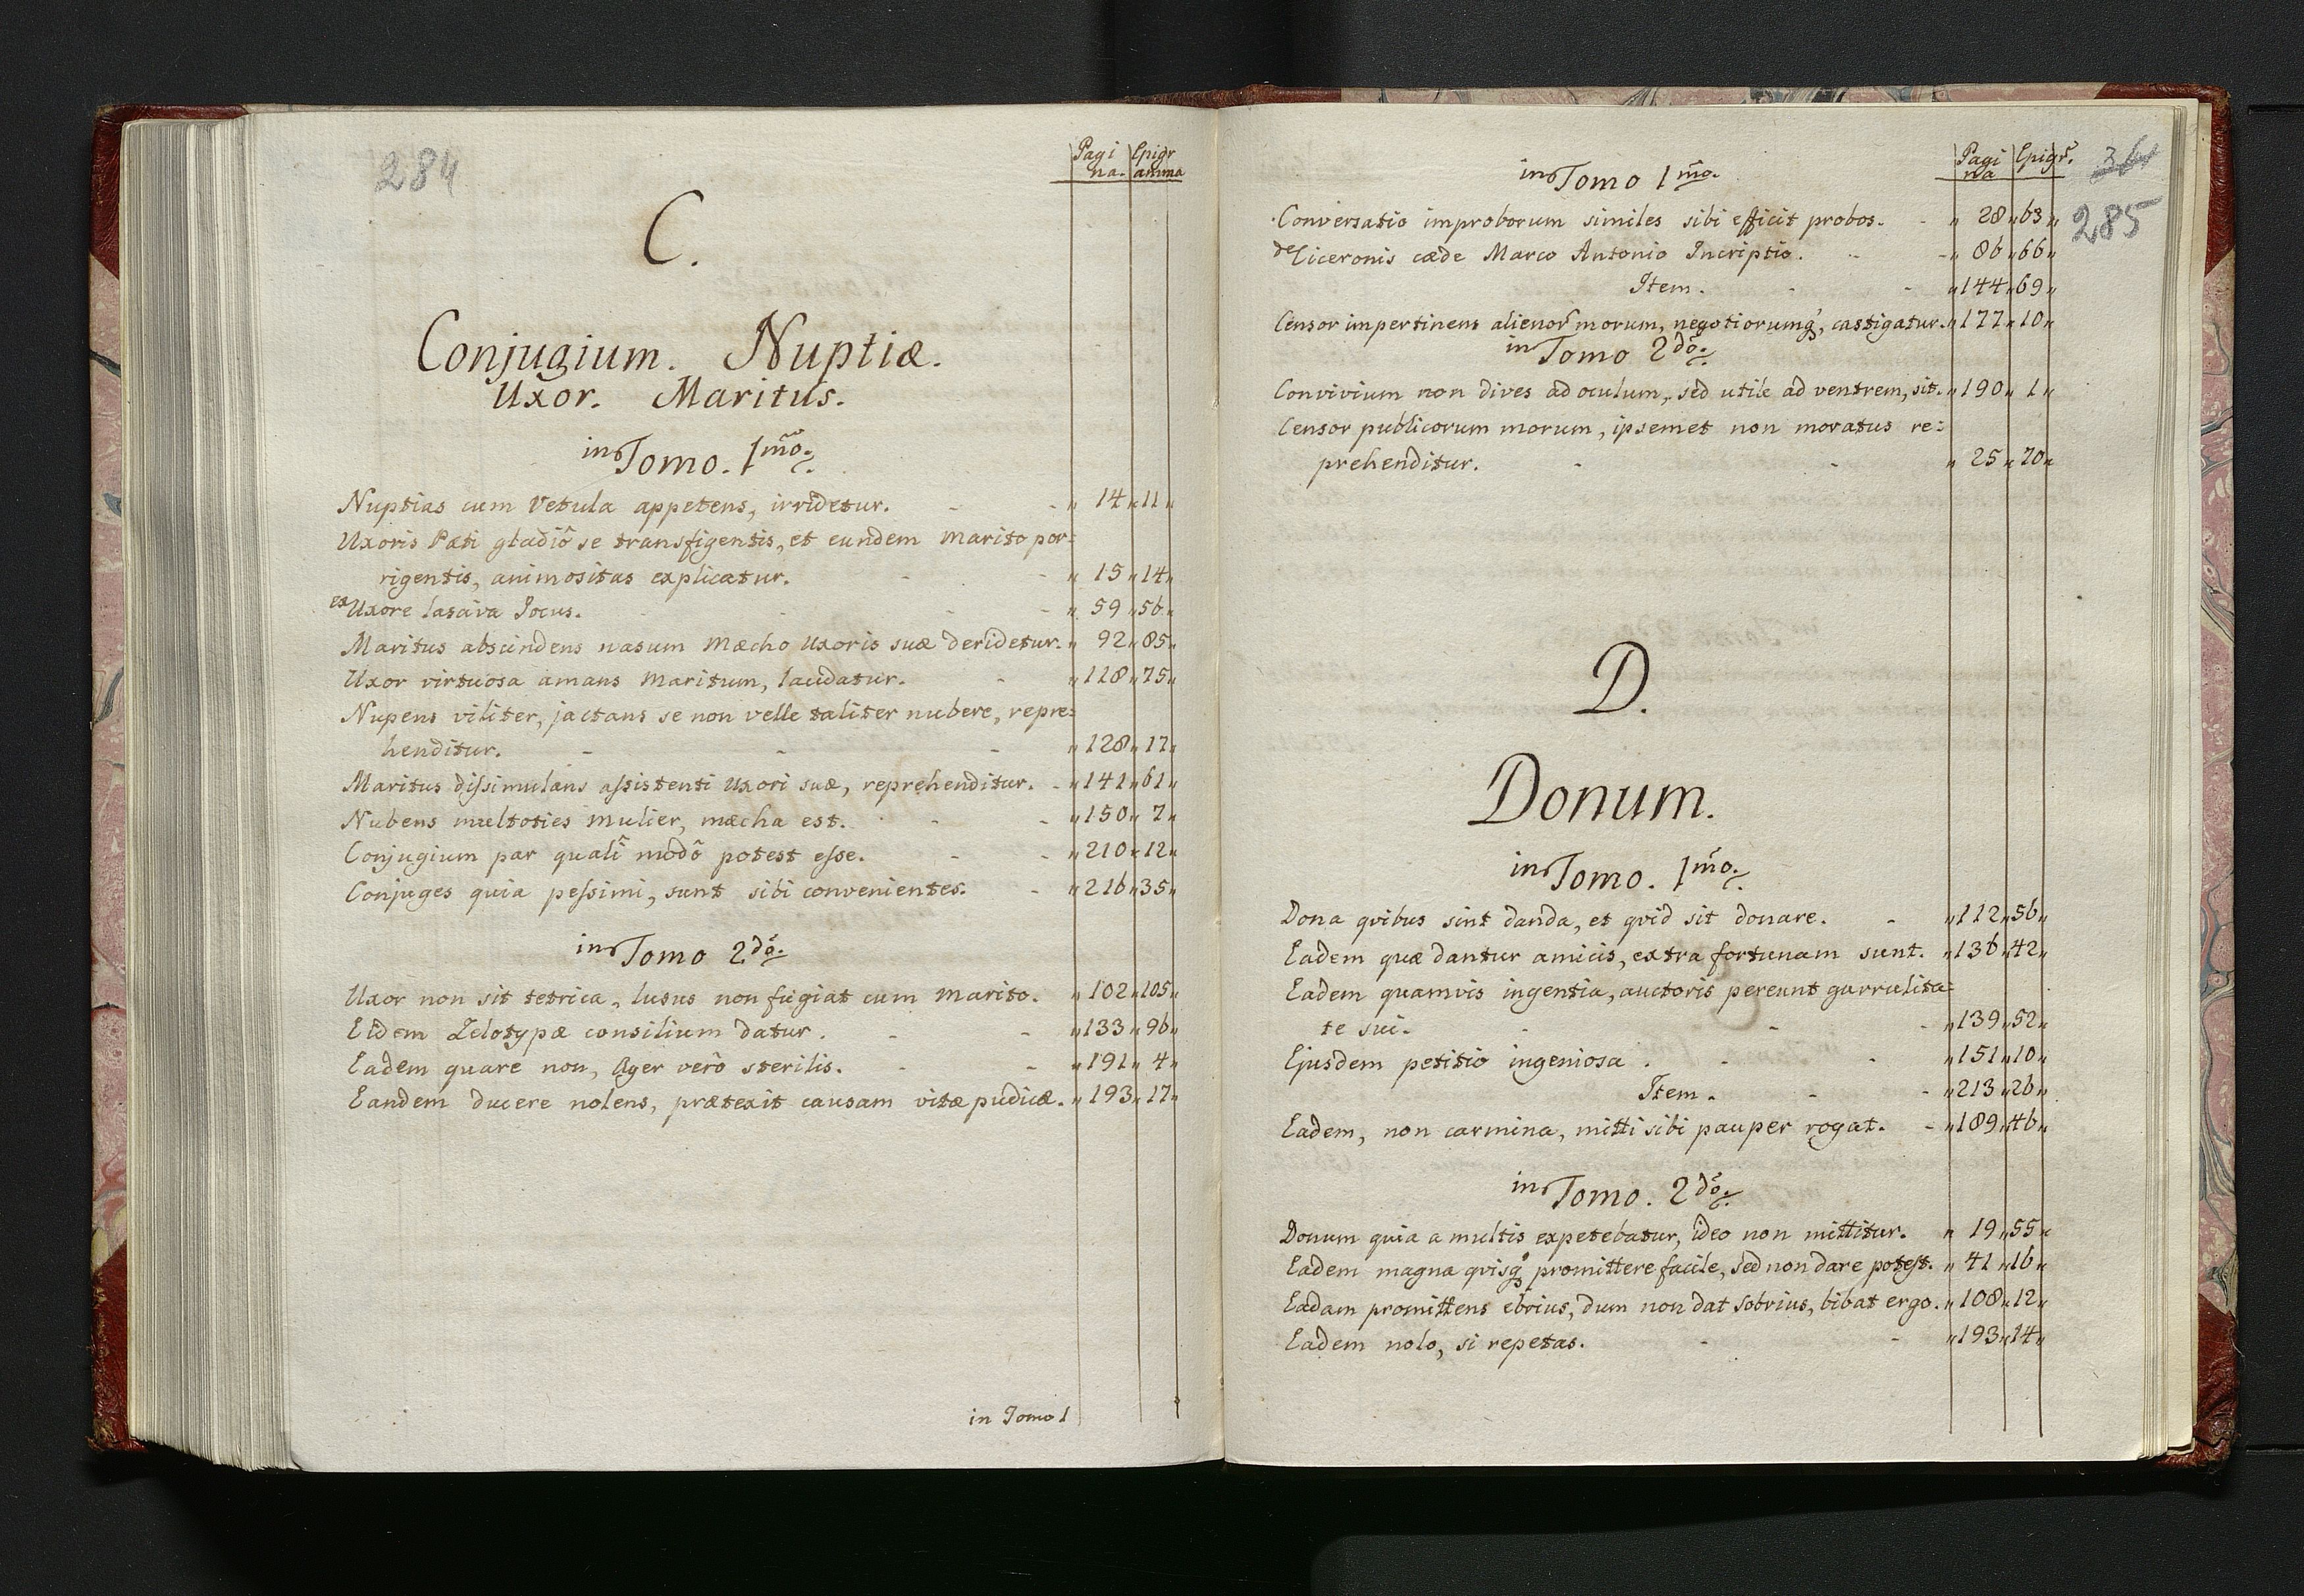 284
Pagi Epigr
na. amma
C.
Conjugium. Nuptiæ.
Uxor. Maritus.
in Tomo. 1mo.
Nuptias cum Vetula appetens, irridetur. - - 14 11
Uxoris Pæti gladiô se transfigentis, et eundem Marito por:
rigentis, animositas explicatur. - - 15 14
ex Uxore lasciva Jocus. - - - 59 56
Maritus abscindens nasum Mæcho Uxoris suæ deridetur. 92 85
Uxor virtuosa amans Maritum, laudatur. - 118 75
Nupens viliter, jactans se non velle taliter nubere, repre:
henditur. - - - 128 17
Maritus dissimulans assistenti Uxori suæ, reprehenditur. - 141 61
Nubens multoties Mulier, mæcha est. - - 150 7
Conjugium par qualî modô potest esse. - - 210 12
Conjuges quia pessimi, sunt sibi convenientes. - 216 35
in Tomo 2do.
Uxor non sit tetrica, lusus non fugiat cum Marito. 102 105
Eidem Zelotypæ consilium datur. - - 133 96
Eadem quare non, Ager verò sterilis. - - 191 4
Eandem ducere nolens, prætexit causam vitæ pudicæ. 193 17
in Tomo 1
in Tomo 1mo.
Pagi Epigr.
na
285
Conversatio improborum similes sibi efficit probos. - 28 63
de Ciceronis cæde Marco Antonio Incriptio. - - 86 66
Item. - - 144 69
Censor impertinens alienor morum, negotiorumq, castigatur. 177 10
in Tomo 2do.
Convivium non dives ad oculum, sed utile ad ventrem, sit. 190 1
Censor publicorum morum, ipsemet non moratus re:
prehenditur. - - 25 70
D.
Donum.
in Tomo. 1mo.
Dona qvibus sint danda, et qvid sit donare. - 112 56
Eadem quæ dantur amicis, extra fortunam sunt. 136 42
Eadem quamvis ingentia, auctoris pereunt garrulita:
te sui. - - - 139 52
Ejusdem petitio ingeniosa. - - 151 10
Item. - - 213 26
Eadem, non carmina, mitti sibi pauper rogat. - 189 46
in Tomo. 2do.
Donum quia a multis expetebatur, ideo non mittitur. 19 55
Eadem magna qvisq promittere facile, sed non dare potest. 41 16
Eadam promittens ebrius, dum non dat sobrius, bibat ergo. 108 12
Eadem nolo, si repetas. - - 193 14